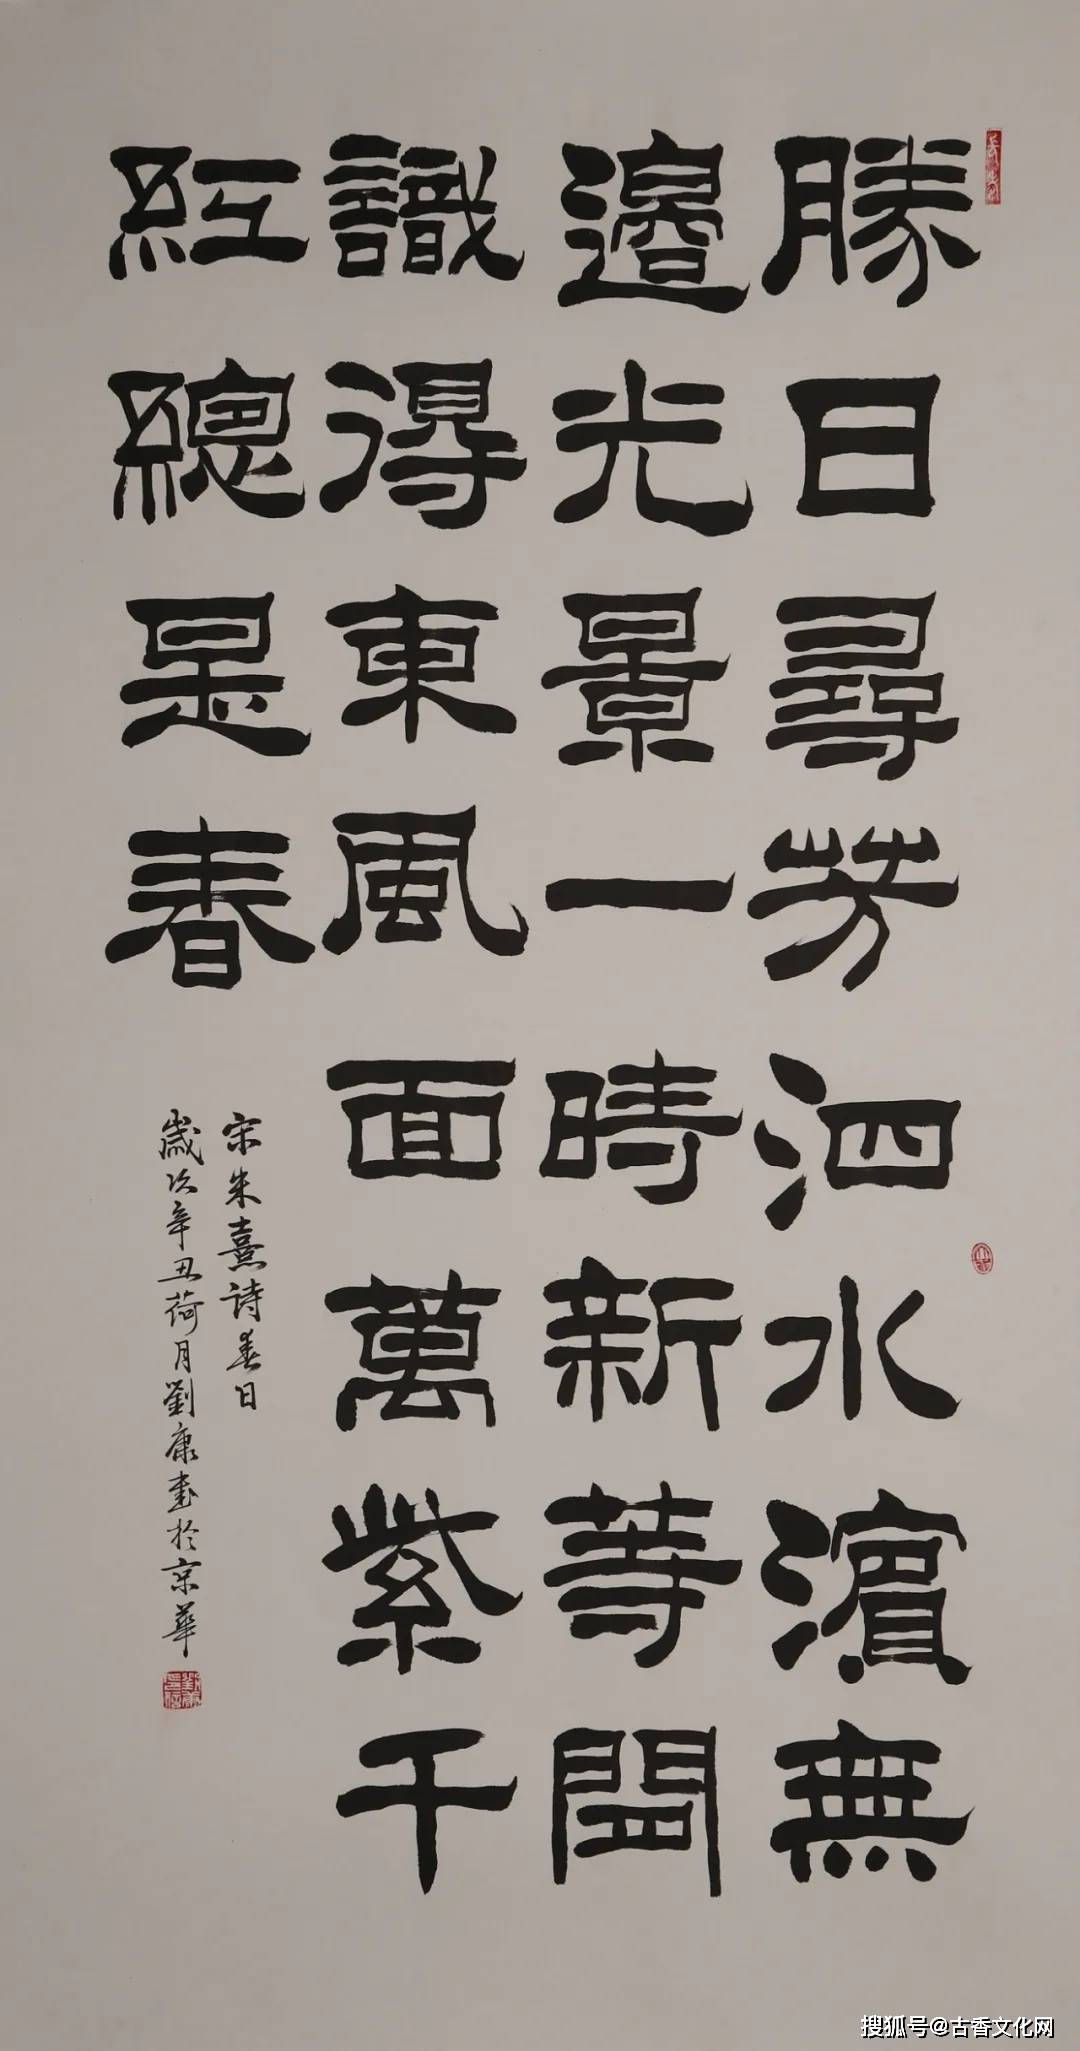 勝日尋芳泗水濱無
邊光景一時新等閒
識得東風面萬紫千
紅總是春
宋朱熹詩春日
歲次辛丑荷月劉康書於京華
搜狐号@古香文化网